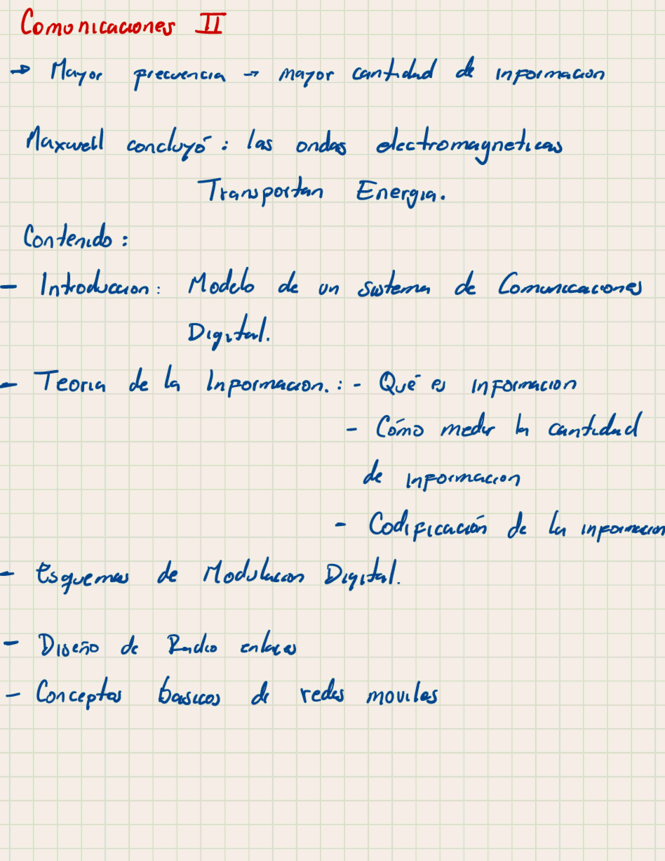 Comunicaciones II
→ Mayor frecuencia → mayor cantidad de informacion
Maxwell concluyó: las ondas electromagneticas
Transportan Energia.
Contenido:
- Introduccion: Modelo de un sistema de Comunicaciones
Digital.
- Teoria de la Informacion.: - Qué es informacion
- Cómo medir la cantidad
de informacion
- Codificación de la informacion
- Esquemas de Modulacion Digital.
- Diseño de Radio enlaces
- Conceptos basicos de redes moviles